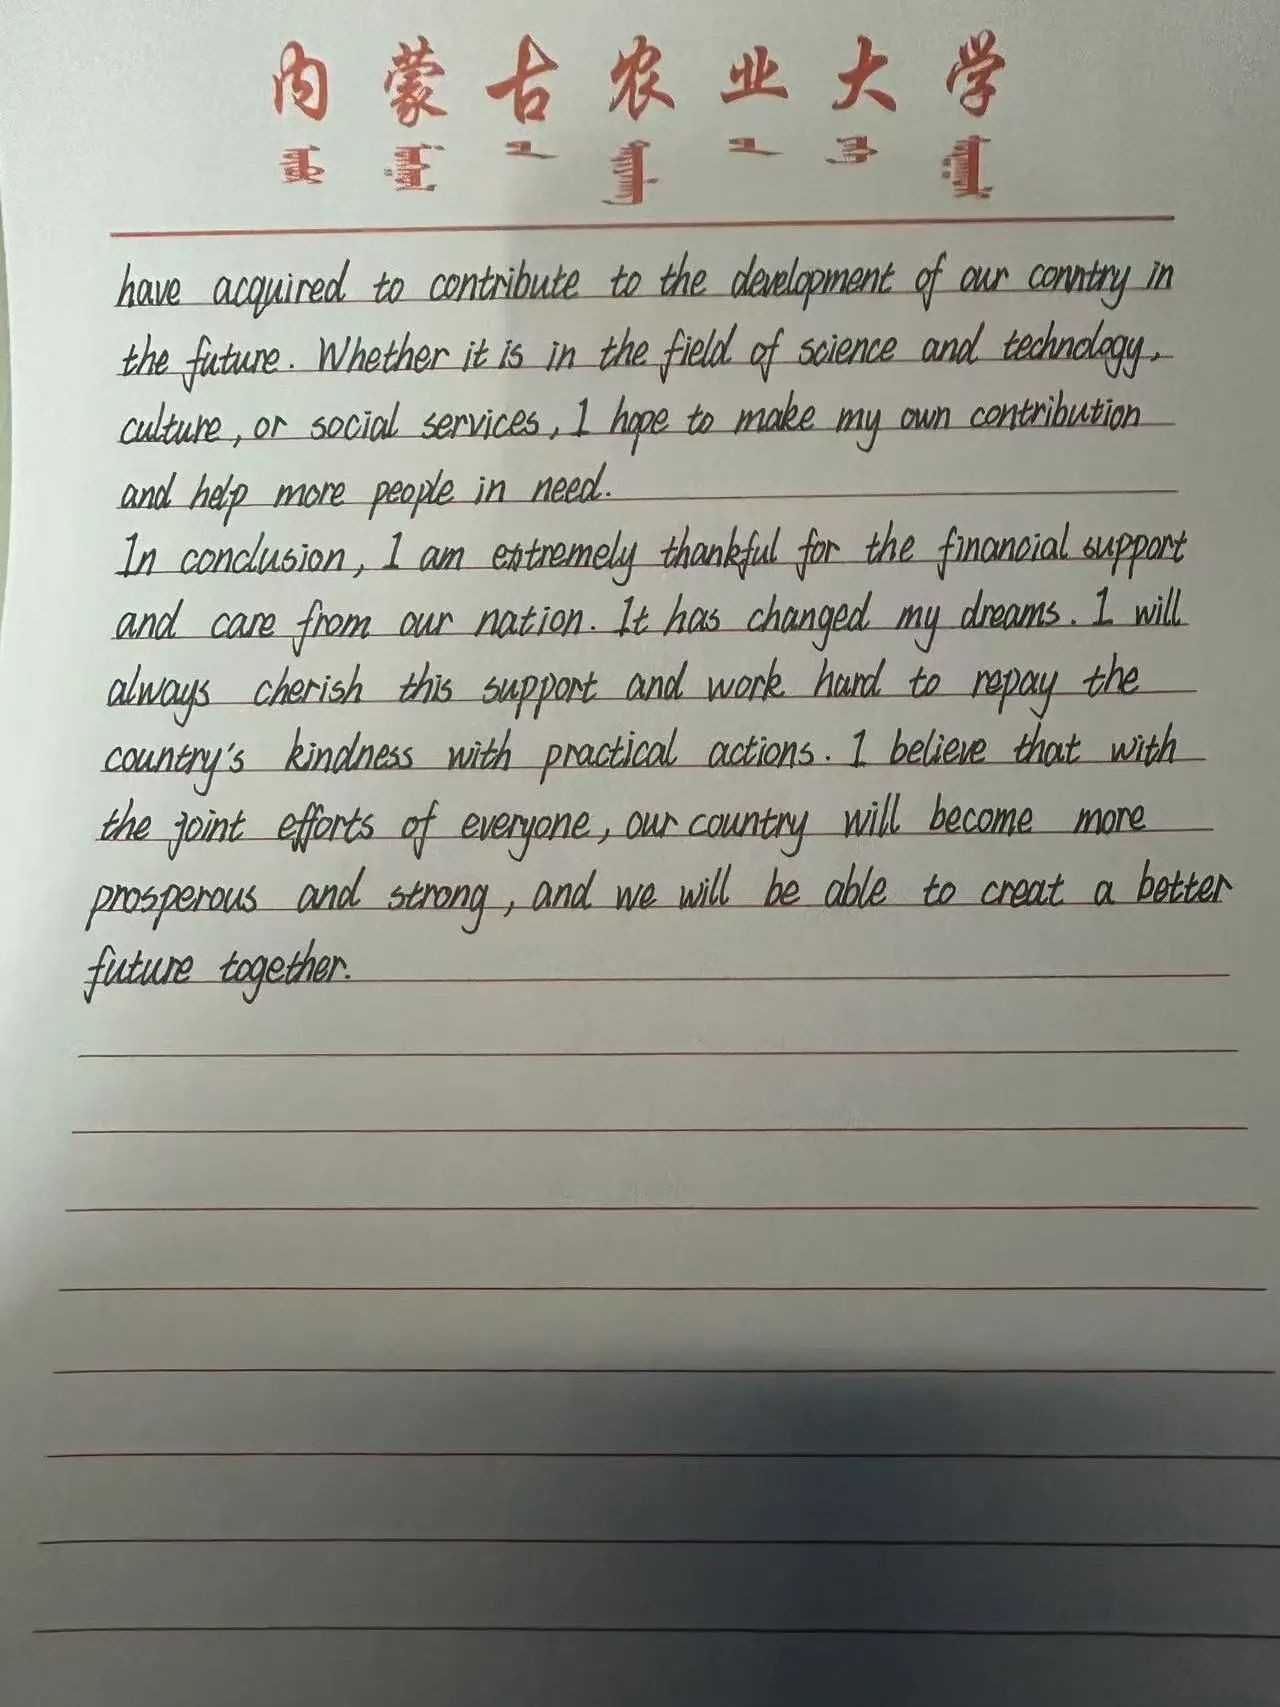 内蒙古农业大学
have acquired to contribute to the development of our conntry in
the future. Whether it is in the field of science and technology,
culture, or social services, I hope to make my own contribution
and help more people in need.
In conclusion, I am extremely thankful for the financial support
and care from our nation. It has changed my dreams. I will
always cherish this support and work hard to repay the
country's kindness with practical actions. I believe that with
the joint efforts of everyone, our country will become more
prosperous and strong, and we will be able to creat a better
future together.